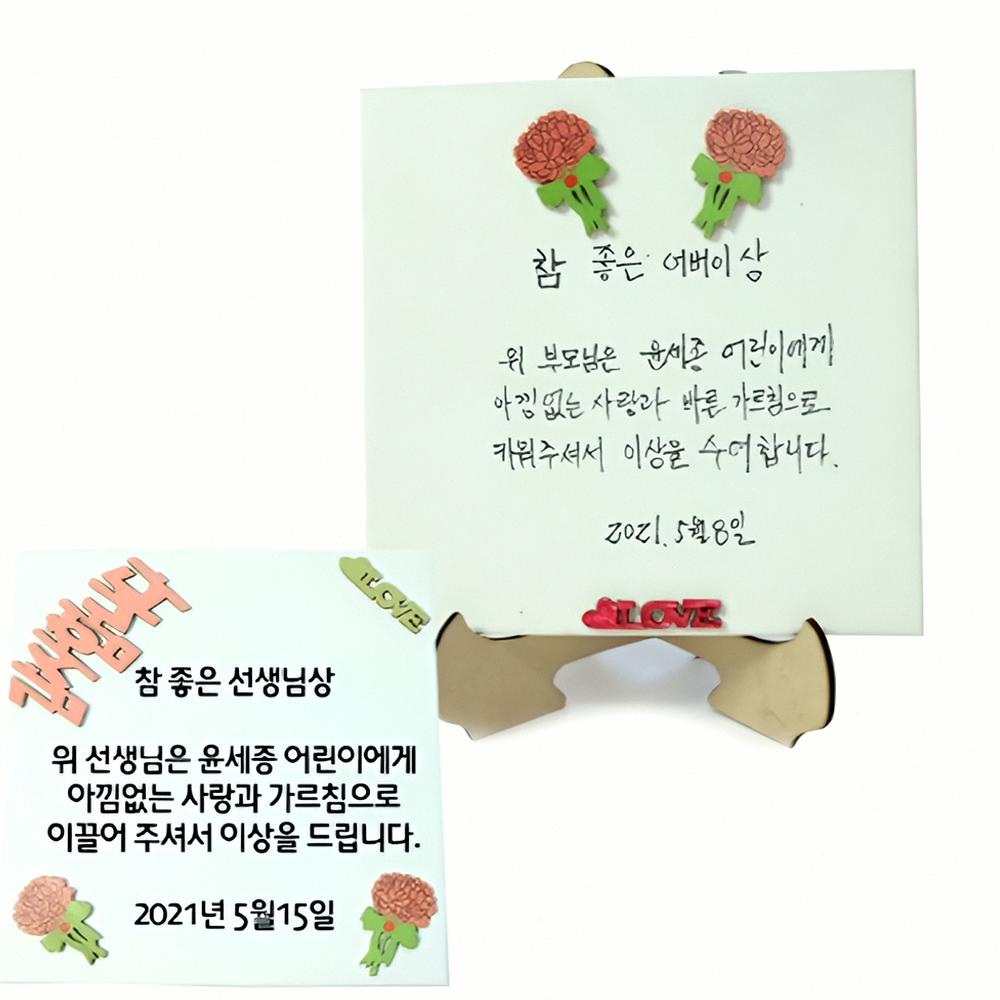 참 좋은 어버이상
위 부모님은 윤세종 어린이에게
아낌없는 사랑과 바른 가르침으로
키워주셔서 이상을 수여합니다.
2021. 5월 8일
I LOVE
감사합니다
I LOVE
참 좋은 선생님상
위 선생님은 윤세종 어린이에게
아낌없는 사랑과 가르침으로
이끌어 주셔서 이상을 드립니다.
2021년 5월15일